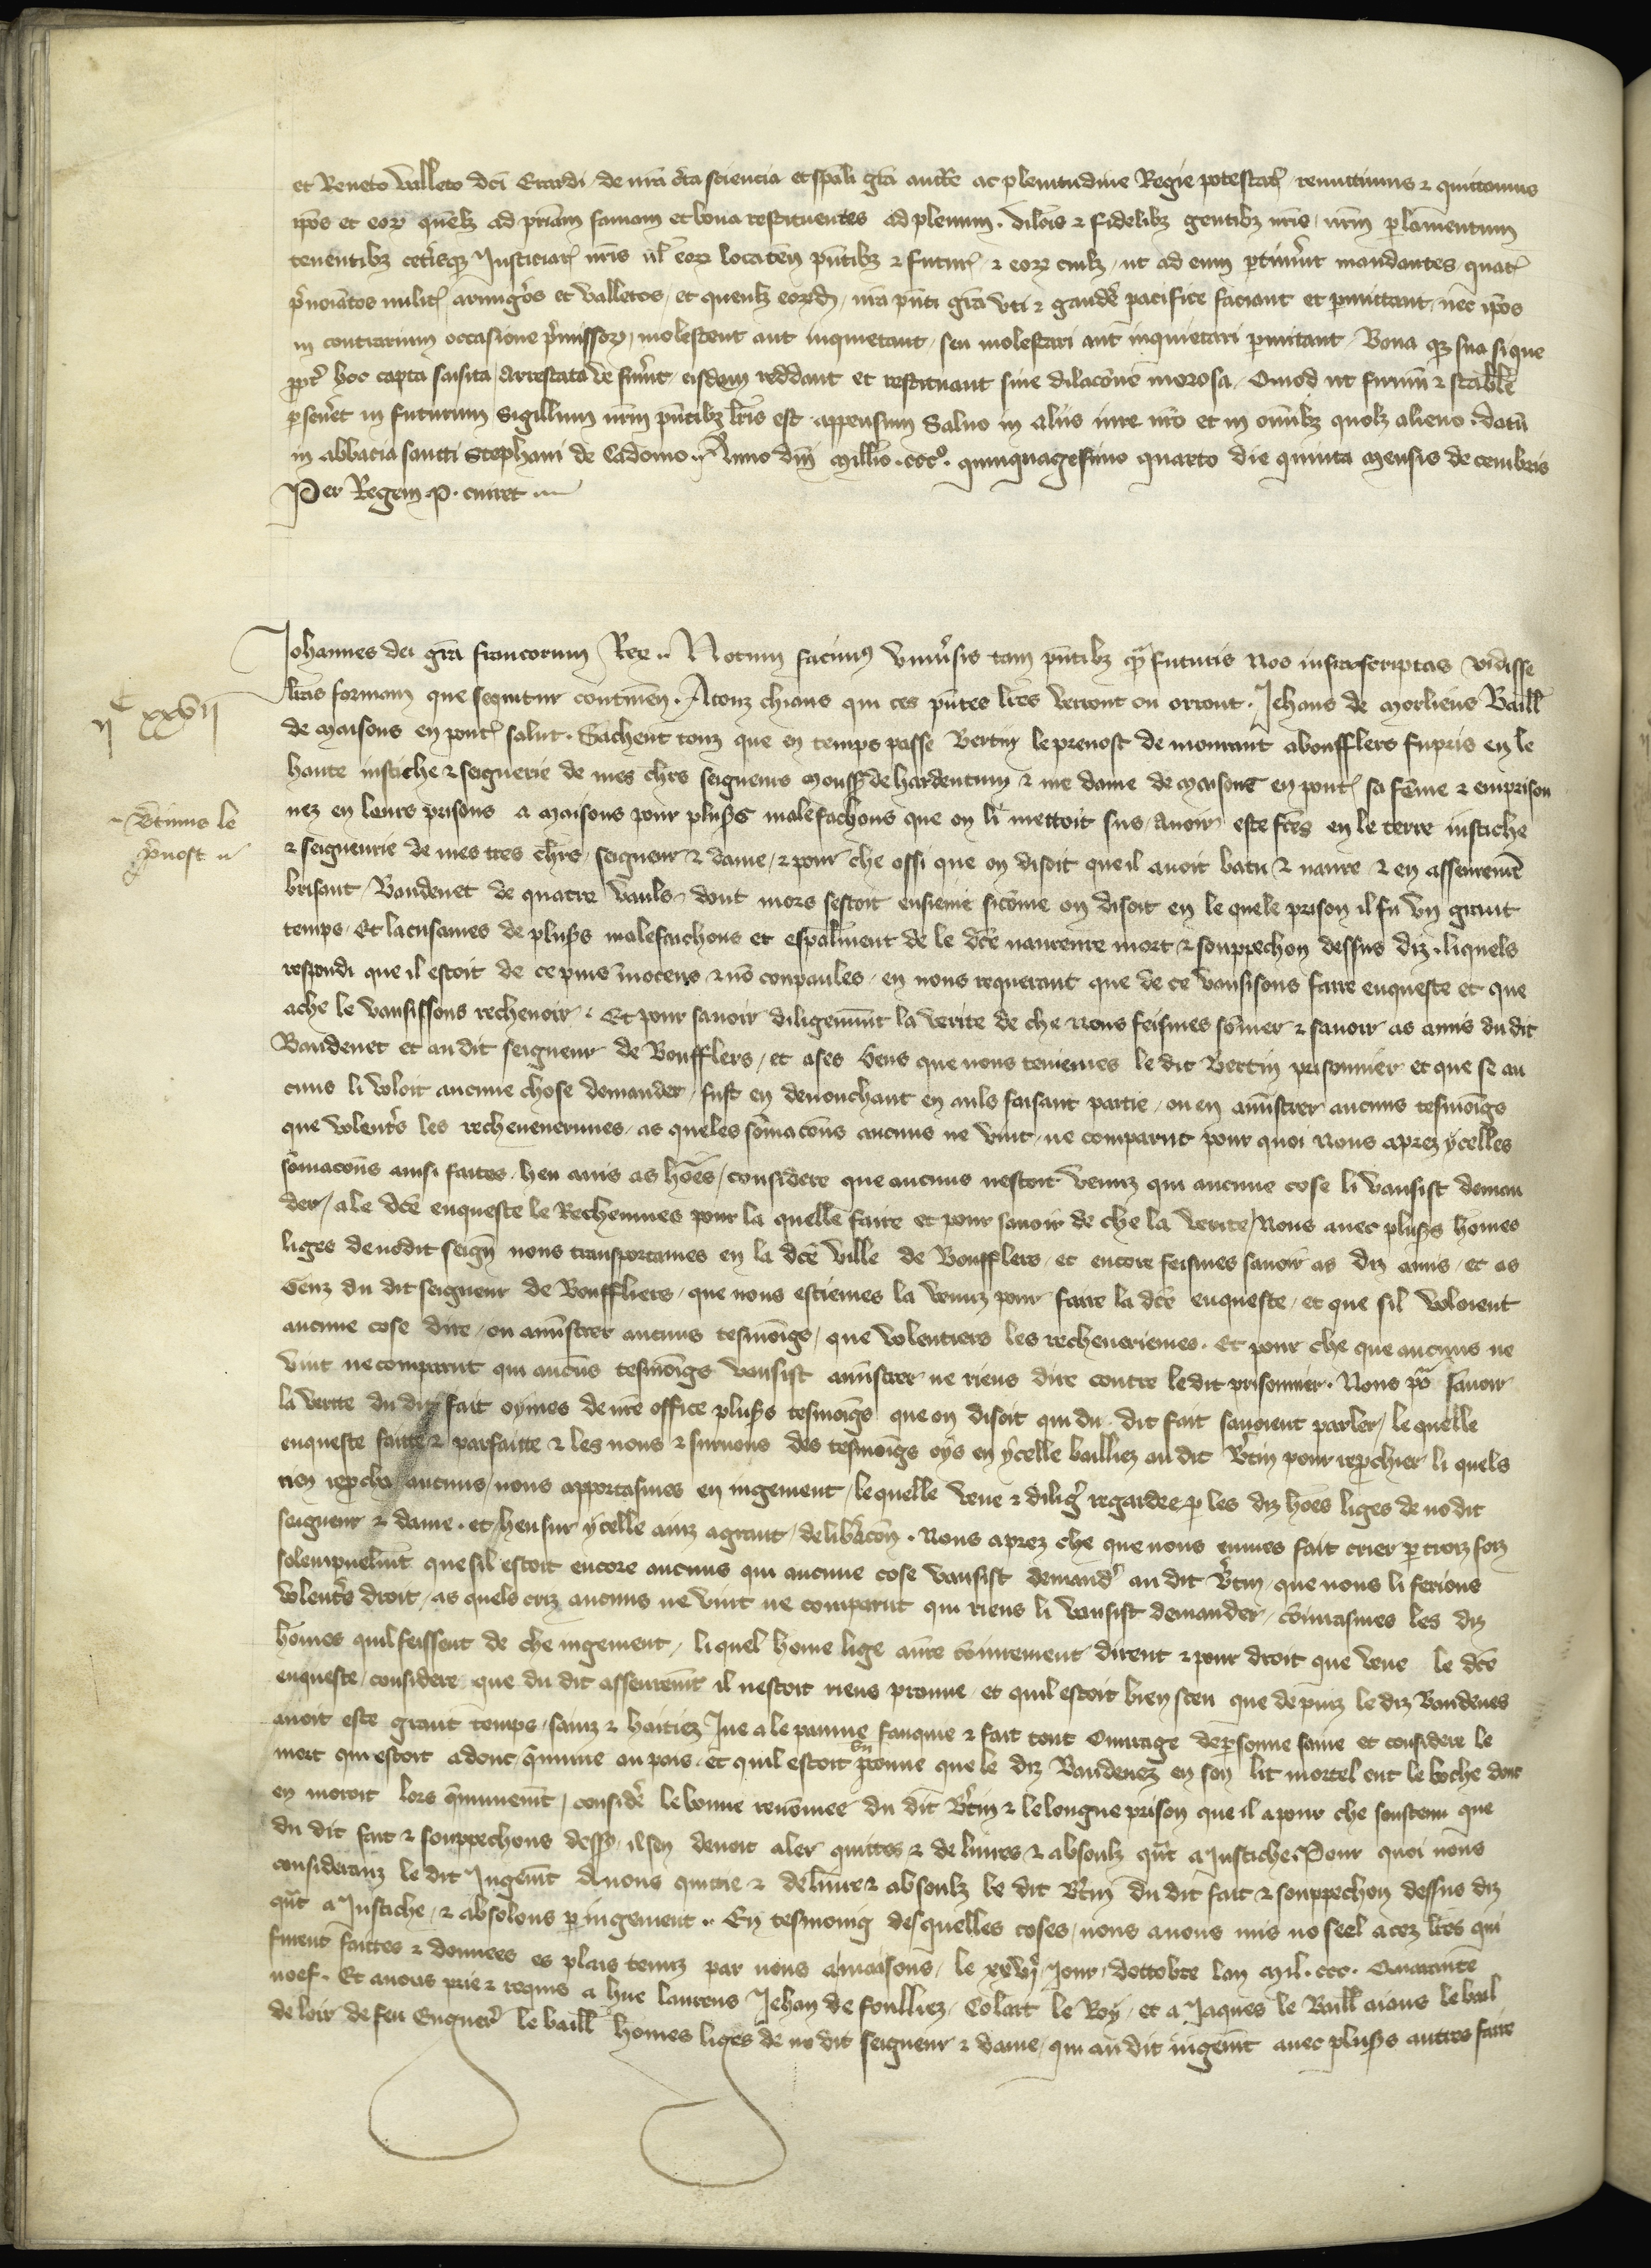 et Reneto valleto dci Erardi de nra cta sciencia et spali gra auctte ac plenitudine Regie potestat remittimus & quittamus
ipos et eor quelz ad priam famam et bona restituentes ad plenum. dilcis & fidelibz gentibz nris nrm plamentum
tenentibz cetisqz Justiciar nris ul eor locaten pntibz & futur & eor cuilz ut ad eum ptinuit mandantes quat
pnoiatos milit armigos et valletos et quenlz eord nra pnti gra uti & gaude pacifice faciant et pmittant nec ipos
in contrarium occasione pmissor molestent aut inquietant seu molestari aut inquietari pmitant Bona qz sua si que
ppt hoc capta saisita arrestata ve fuerint eisdem reddant et restituant sine dilacone morosa. Quod ut firmu & stabile
pseueret in futurum Sigillum nrm pntibz lris est appensum Saluo in aliis iure nro et in omibz quolz alieno. datu
in abbacia sancti Stephani de Cadomo. Anno dni millio .ccc°. quinquagesimo quarto die quinta mensis decembris
Per Regem P. cuiret
Johannes dei gra francorum Rex .. Notum facimus uniusis tam pntibz qua futuris nos infrascriptas vidisse
lras formam que sequitur continen. A touz chiaus qui ces pntes lres verront ou orront. Jehans de morliens Baill
de maisons en pont salut. Sachent touz que en temps passe Bertin le preuost demourant a bouflers fu pris en le
haute iustiche & seignerie de mes chrs seigneurs mouss de hardentun & me dame de maisons en pont sa feme & emprison
nez en leurs prisons a maisons pour plusrs malefachons que on li mettoit sus auoir este fces en le terre iustiche
& seigneurie de mes tres chrs seigneur & dame & pour che ossi que on disoit que il auoit batu & naure & en asseuremt
brisant Baudenet de quatre vauls dont mors sestoit ensieuie sicome on disoit en le quele prison il fu un grant
temps. Et lacusames de plusrs malefaichons et espalment de le dce naureure mort & souppechon dessus diz. liquels
respondi que il estoit de ce purs inocens & no coupaules en nous requerant que de ce vausisons faire enqueste et que
a che le vausissons recheuoir. Et pour sauoir diligemnt la verite de che nous feismes somer & sauoir as amis du dit
Baudenet et au dit seigneur de Boufflers et a ses gens que nous teniemes le dit Bertin prisonnier et que se au
cuns li voloit aucune chose demander fust en denonchant en auls faisant partie ou en amistrer aucuns tesmoigs
que volents les recheueuerimes as queles somacons aucuns ne vint ne comparut pour quoi nous aprez ycelles
somacons ainsi faites heu auis as homes considere que aucuns nestoit venuz qui aucune cose li vausist deman
der a le dce enqueste le Recheumes pour la quelle faire et pour sauoir de che la verite nous auec plusrs homes
liges de nodit seign nous transportames en la dce ville de Boufflers et encore feismes sauoir as diz amis et as
Genz du dit seigneur de Bouffliers que nous estiemes la venuz pour faire la dce enqueste et que sil voloient
aucune cose dire ou amistrer aucuns tesmoigs que volentiers les recheueriemes. Et pour che que aucuns ne
vint ne comparut qui aucuns tesmoigs vausist amistrer ne riens dire contre ledit prisonnier. Nous po sauoir
la verite du dit fait oymes de nre office plusrs tesmoigs que on disoit qui du dit fait sauoient parler le quelle
enqueste faitte & parfaitte & les nons & surnons des tesmoigs oys en ycelle bailliez au dit Btin pour repchier li quels
rien repcha aucuns nous apportasmes en iugement lequelle veue & dilig regardee p les diz homes liges de nodit
seigneur & dame. et heu sur ycelle auis a grant delibacon. Nous aprez che que nous eumes fait crier p troiz foiz
solempnelmt que sil estoit encore aucuns qui aucune cose vausist demand au dit Btin que nous li ferions
volents droit as quels criz aucuns ne vint ne comparut qui riens li vausist demander coniurasmes les diz
homes quil feissent de che iugement liquel home lige aure coniurement dirent & pour droit que veue le dce
enqueste considere que du dit asseuremt il nestoit riens prouue et quil estoit bien sceu que depuiz le diz Baudenes
auoit este grant temps sainz & haitiez Jue a le paume fauquie & fait tout Ouurage de psonne saine et considere le
mort qui estoit adonc qmune au pais et quil estoit bn prouue que le diz Baudenez en son lit mortel eut le boche dont
en moroit lors qmunemt considere le bonne renomee du dit Btin & le longue prison que il a pour che soustenu que
du dit fait & souppechons dess il sen deuoit aler quittes & deliures & absoulz qut a Justiche. Pour quoi nous
consideranz le dit Jugemt Auons quitte & deliure & absoulz le dit Btin du dit fait & souppechon dessus diz
qut a Justiche & absolons p iugement .. En tesmoing desquelles coses nous auons mis no seel a cez lres qui
furent faittes & donnees es plais tenuz par nous a maisons le xxvij Jour dottobre lan mil. ccc. Quarante
noef. Et auons prie & requis a hue laurens Jehan de foulliez Colart le Roy et a Jaques le Baill aians le bail
de loir de feu Enguer le baill homes liges de no dit seigneur & dame qui au dit iugemt auec plusrs autres faire
ijC xxvij
Btinus le
puost